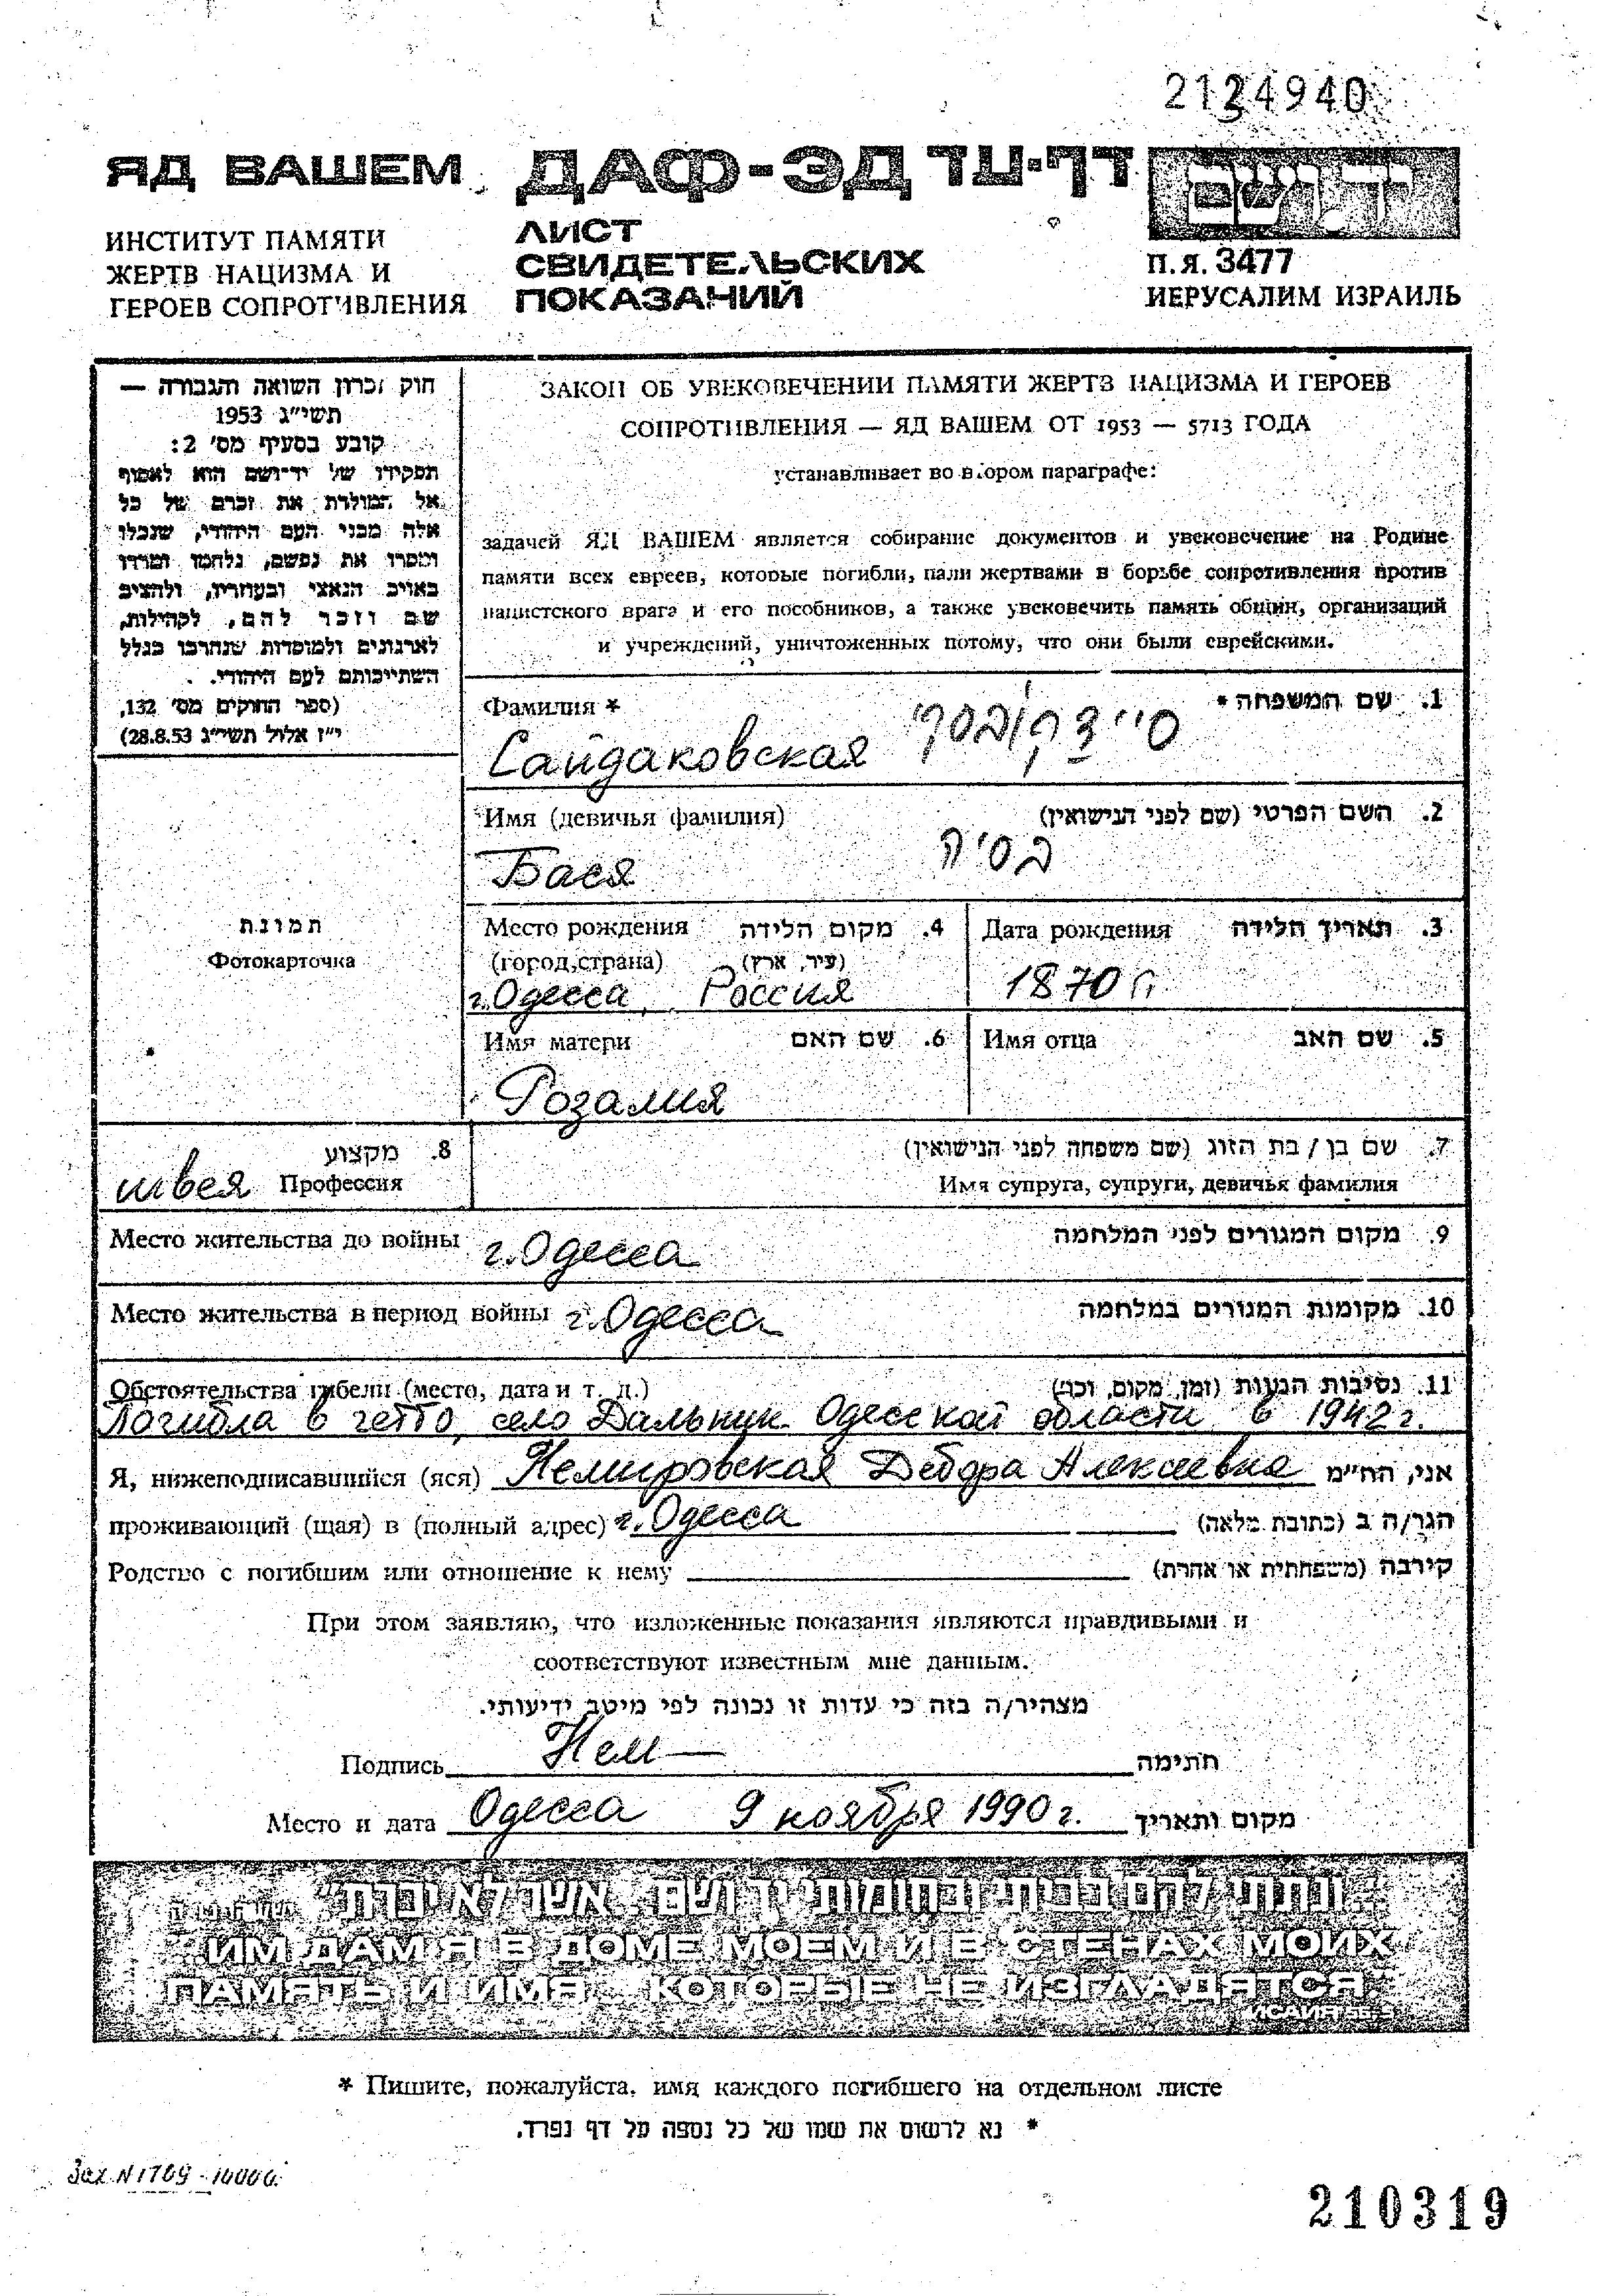 2124940
ЯД ВАШЕМ
ДАФ-ЭД דף-עד
יד ושם
ИНСТИТУТ ПАМЯТИ
ЖЕРТВ НАЦИЗМА И
ГЕРОЕВ СОПРОТИВЛЕНИЯ
ЛИСТ
СВИДЕТЕЛЬСКИХ
ПОКАЗАНИЙ
П.Я. 3477
ИЕРУСАЛИМ ИЗРАИЛЬ
חוק זכרון השואה והגבורה —
תשי״ג 1953
קובע בסעיף מס׳ 2:
תפקידו של יד־ושם הוא לאסוף
אל המולדת את זכרם של כל
אלה מבני העם היהודי, שנפלו
ומסרו את נפשם, נלחמו ומרדו
באויב הנאצי ובעוזריו, ולהציב
שם וזכר להם, לקהילות,
לארגונים ולמוסדות שנחרבו בגלל
השתייכותם לעם היהודי.
(ספר החוקים מס׳ 132,
י״ז אלול תשי״ג 28.8.53)
ЗАКОН ОБ УВЕКОВЕЧЕНИИ ПАМЯТИ ЖЕРТВ НАЦИЗМА И ГЕРОЕВ
СОПРОТИВЛЕНИЯ — ЯД ВАШЕМ ОТ 1953 — 5713 ГОДА
устанавливает во втором параграфе:
задачей ЯД ВАШЕМ является собирание документов и увековечение на Родине
памяти всех евреев, которые погибли, пали жертвами в борьбе сопротивления против
нацистского врага и его пособников, а также увековечить память общин, организаций
и учреждений, уничтоженных потому, что они были еврейскими.
Фамилия * 1. שם המשפחה *
Сайдаковская סיידקובסקי
Имя (девичья фамилия) 2. השם הפרטי (שם לפני הנישואין)
Бася בסיה
תמונת
Фотокарточка
Место рождения 4. מקום הלידה
(город, страна) (עיר, ארץ)
г. Одесса, Россия
Дата рождения 3. תאריך הלידה
1870 г.
Имя матери 6. שם האם
Розалия
Имя отца 5. שם האב
8. מקצוע
швея Профессия
7. שם בן / בת הזוג (שם משפחה לפני הנישואין)
Имя супруга, супруги, девичья фамилия
Место жительства до войны г. Одесса 9. מקום המגורים לפני המלחמה
Место жительства в период войны г. Одесса 10. מקומות המגורים במלחמה
Обстоятельства гибели (место, дата и т. д.) 11. נסיבות המוות (זמן, מקום, וכו׳)
Погибла в гетто, село Дальник Одесской области в 1942 г.
Я, нижеподписавшийся (яся) Немировская Дебора Алексеевна אני, הח״מ
проживающий (щая) в (полный адрес) г. Одесса הגר/ה ב (כתובת מלאה)
Родство с погибшим или отношение к нему קירבה (משפחתית או אחרת)
При этом заявляю, что изложенные показания являются правдивыми и
соответствуют известным мне данным.
מצהיר/ה בזה כי עדות זו נכונה לפי מיטב ידיעותי.
Подпись Нем חתימה
Место и дата Одесса 9 ноября 1990 г. מקום ותאריך
״...ונתתי להם בביתי ובחומותי יד ושם... אשר לא יכרת״
"...ИМ ДАМ Я В ДОМЕ МОЕМ И В СТЕНАХ МОИХ
ПАМЯТЬ И ИМЯ... КОТОРЫЕ НЕ ИЗГЛАДЯТСЯ."
* Пишите, пожалуйста, имя каждого погибшего на отдельном листе
* נא לרשום את שמו של כל נספה על דף נפרד.
Зак. N 1709 - 10000.
210319